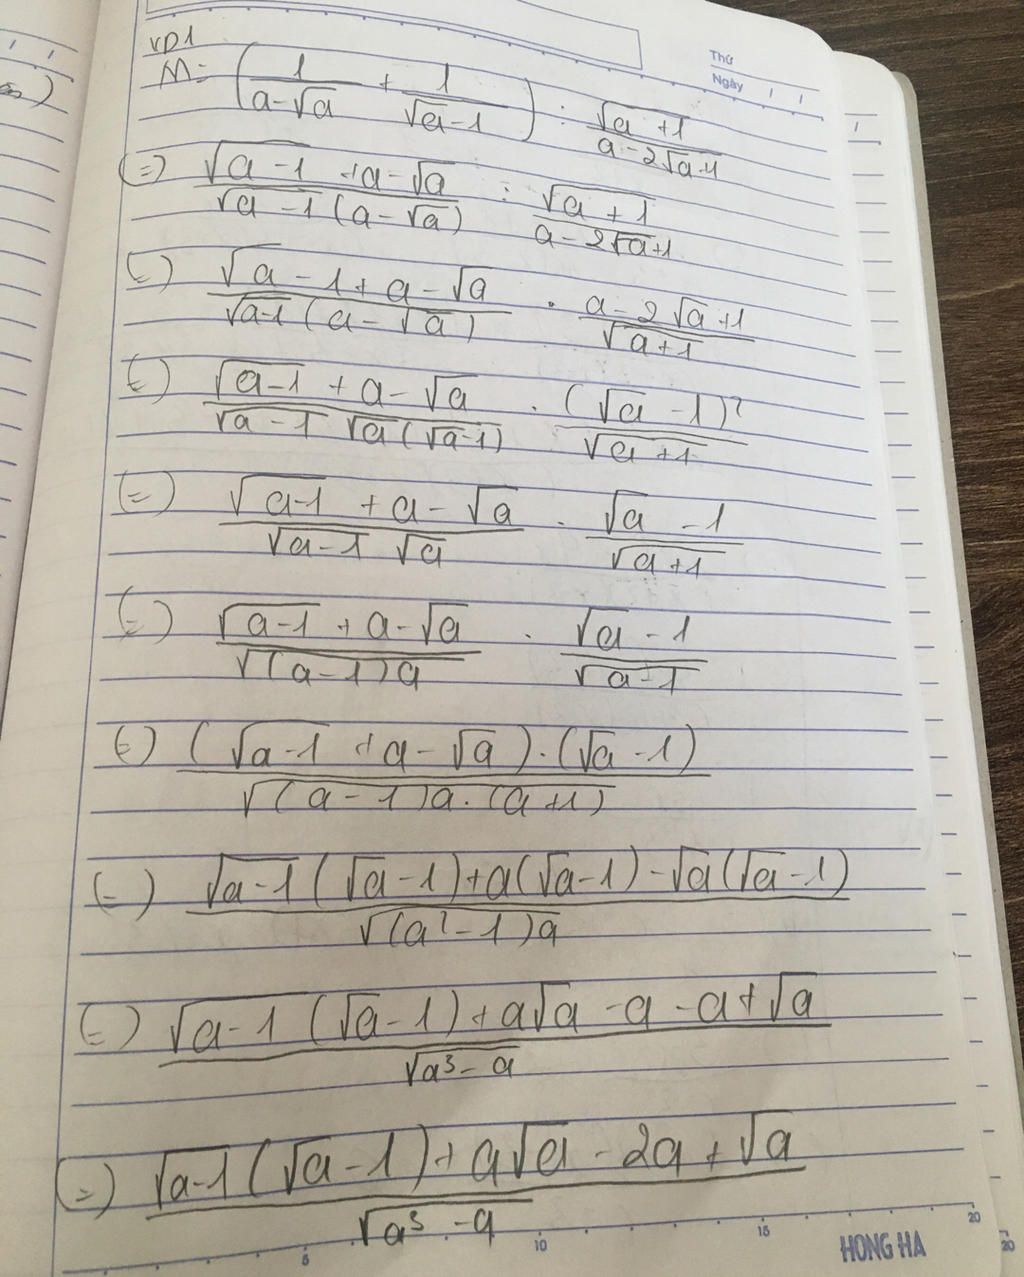 Thứ
Ngày
VD1
M = (1/(a-√a) + 1/(√a-1)) : (√a+1)/(a-2√a+1)
(=) (√(a-1) + a-√a)/(√(a-1) (a-√a)) : √(a+1)/(a-2√a+1)
(=) (√a-1 + a-√a)/(√(a-1) (a-√a)) . (a-2√a+1)/√(a+1)
(=) (√(a-1) + a-√a)/(√(a-1) √a(√a-1)) . (√a-1)²/√(a+1)
(=) (√(a-1) + a-√a)/(√(a-1) √a) . (√a-1)/√(a+1)
(=) (√(a-1) + a-√a)/√((a-1)a) . (√a-1)/√(a-1)
(=) (√(a-1) + a-√a).(√a-1)/√((a-1)a.(a+1))
(=) (√(a-1)(√a-1)+a(√a-1)-√a(√a-1))/√((a²-1)a)
(=) (√(a-1)(√a-1)+a√a-a-a+√a)/√(a³-a)
(=) (√(a-1)(√a-1)+a√a-2a+√a)/√(a³-a)
5 10 15 20
HONG HA
20